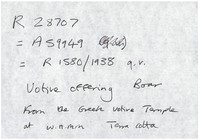 R 28707
= A59949
= R 1580/1938 q.v.
Votive offering Boar
From the Greek Votive Temple
at W.H.Min Terra cotta